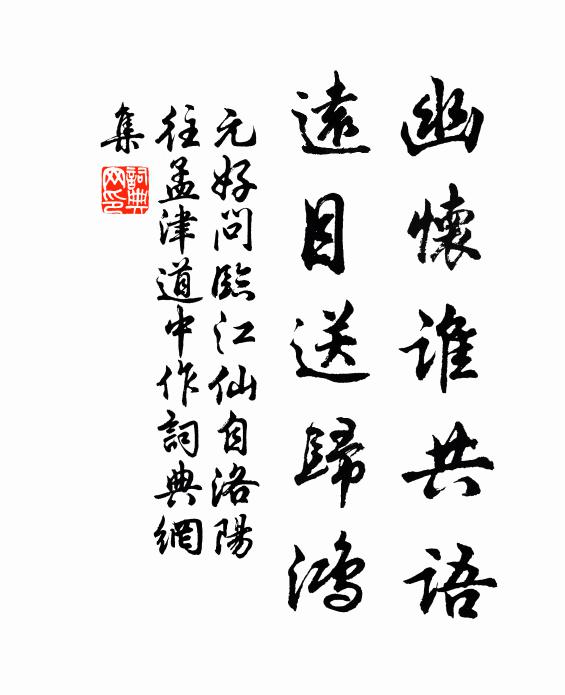 幽懷誰共語
遠目送歸鴻
元好問臨江仙自洛陽
往孟津道中作詞典網
集
詞典
网印